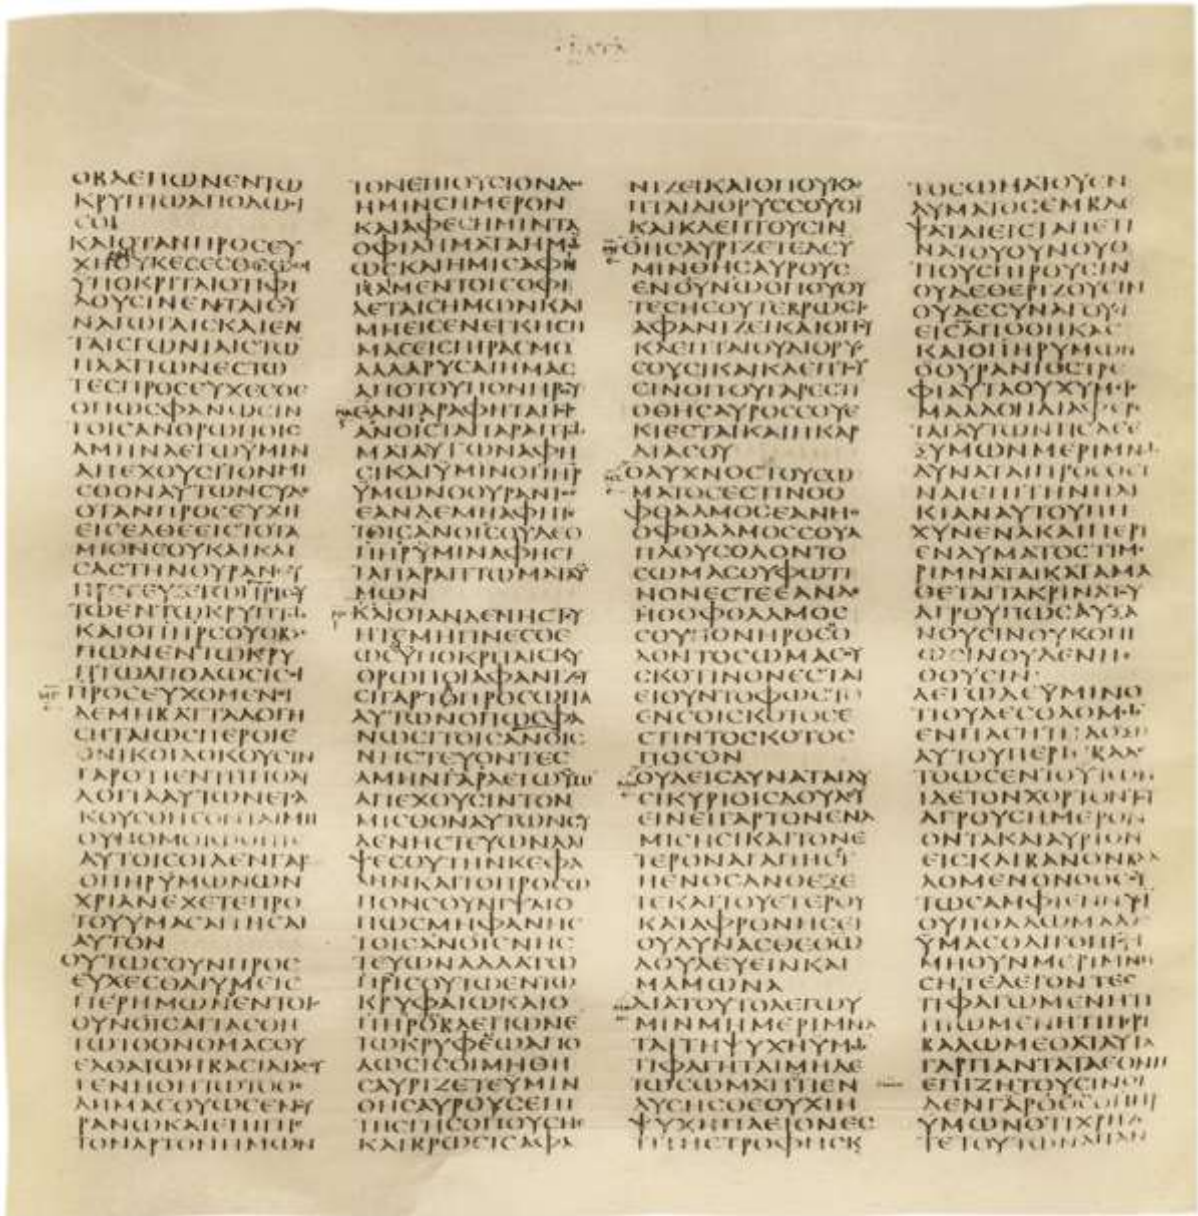 ΟΒΛΕΠΩΝΕΝΤΩ
ΚΡΥΠΤΩΑΠΟΔΩϹΙ
ϹΟΙ
ΚΑΙΟΤΑΝΠΡΟϹΕΥ
ΧΗΟΥΚΕϹΕϹΘΕΩϹΟΙ
ΥΠΟΚΡΙΤΑΙΟΤΙΦΙ
ΛΟΥϹΙΝΕΝΤΑΙϹΥ
ΝΑΓΩΓΑΙϹΚΑΙΕΝ
ΤΑΙϹΓΩΝΙΑΙϹΤΩ
ΠΛΑΤΙΩΝΕϹΤΩ
ΤΕϹΠΡΟϹΕΥΧΕϹΘΕ
ΟΠΩϹΦΑΝΩϹΙΝ
ΤΟΙϹΑΝΘΡΩΠΟΙϹ
ΑΜΗΝΛΕΓΩΥΜΙΝ
ΑΠΕΧΟΥϹΙΤΟΝΜΙ
ϹΘΟΝΑΥΤΩΝϹΥΔΕ
ΟΤΑΝΠΡΟϹΕΥΧΗ
ΕΙϹΕΛΘΕΕΙϹΤΟΤΑ
ΜΙΟΝϹΟΥΚΑΙΚΛΙ
ϹΑϹΤΗΝΘΥΡΑΝϹΟΥ
ΠΡΟϹΕΥΞΕΤΩΠΡΙϹΟΥ
ΤΩΕΝΤΩΚΡΥΠΤΩ
ΚΑΙΟΠΗΡϹΟΥΟΒΛΕ
ΠΩΝΕΝΤΩΚΡΥ
ΠΤΩΑΠΟΔΩϹΙϹΟΙ
ΠΡΟϹΕΥΧΟΜΕΝΟΙ
ΔΕΜΗΒΑΤΤΑΛΟΓΗ
ϹΗΤΑΙΩϹΠΕΡΟΙΕ
ΘΝΙΚΟΙΔΟΚΟΥϹΙΝ
ΓΑΡΟΤΙΕΝΤΗΠΟΛΥ
ΛΟΓΙΑΑΥΤΩΝΕΙϹΑ
ΚΟΥϹΘΗϹΟΝΤΑΙΜΗ
ΟΥΝΟΜΟΙΩΘΗΤΕ
ΑΥΤΟΙϹΟΙΔΕΝΓΑΡ
ΟΠΗΡΥΜΩΝΩΝ
ΧΡΙΑΝΕΧΕΤΕΠΡΟ
ΤΟΥΥΜΑϹΑΙΤΗϹΑΙ
ΑΥΤΟΝ
ΟΥΤΩϹΟΥΝΠΡΟϹ
ΕΥΧΕϹΘΑΙΥΜΕΙϹ
ΠΕΡΗΜΩΝΕΝΤΟΙϹ
ΟΥΝΟΙϹΑΓΙΑϹΘΗ
ΤΩΤΟΟΝΟΜΑϹΟΥ
ΕΛΘΑΤΩΗΒΑϹΙΛΙΑϹΟΥ
ΓΕΝΗΘΗΤΩΤΟΘΕ
ΛΗΜΑϹΟΥΩϹΕΝΟΥ
ΡΑΝΩΚΑΙΕΠΙΓΗϹ
ΤΟΝΑΡΤΟΝΗΜΩΝ
ΤΟΝΕΠΙΟΥϹΙΟΝΔΟϹ
ΗΜΙΝϹΗΜΕΡΟΝ
ΚΑΙΑΦΕϹΗΜΙΝΤΑ
ΟΦΙΛΗΜΑΤΑΗΜΩ
ΩϹΚΑΙΗΜΙϹΑΦΗ
ΚΑΜΕΝΤΟΙϹΟΦΙ
ΛΕΤΑΙϹΗΜΩΝΚΑΙ
ΜΗΕΙϹΕΝΕΓΚΗϹΗ
ΜΑϹΕΙϹΠΙΡΑϹΜΟ
ΑΛΛΑΡΥϹΑΙΗΜΑϹ
ΑΠΟΤΟΥΠΟΝΗΡΟΥ
ΕΑΝΓΑΡΑΦΗΤΑΙΤΟΙϹ
ΑΝΟΙϹΤΑΠΑΡΑΠΤΩ
ΜΑΤΑΑΥΤΩΝΑΦΗ
ϹΙΚΑΙΥΜΙΝΟΠΗΡ
ΥΜΩΝΟΟΥΡΑΝΙΟϹ
ΕΑΝΔΕΜΗΑΦΗΤΕ
ΤΟΙϹΑΝΟΙϹΟΥΔΕΟ
ΠΗΡΥΜΙΝΑΦΗϹΙ
ΤΑΠΑΡΑΠΤΩΜΑΤΑΥ
ΜΩΝ
ΚΑΙΟΤΑΝΔΕΝΗϹΤΕΥ
ΗΤΕΜΗΓΙΝΕϹΘΕ
ΩϹΥΠΟΚΡΙΤΑΙϹΚΥ
ΘΡΩΠΟΙΑΦΑΝΙΖΟΥ
ϹΙΓΑΡΤΟΠΡΟϹΩΠΑ
ΑΥΤΩΝΟΠΩϹΦΑ
ΝΩϹΙΤΟΙϹΑΝΟΙϹ
ΝΗϹΤΕΥΟΝΤΕϹ
ΑΜΗΝΓΑΡΛΕΓΩΥΜΙ
ΑΠΕΧΟΥϹΙΝΤΟΝ
ΜΙϹΘΟΝΑΥΤΩΝϹΥ
ΔΕΝΗϹΤΕΥΩΝΑΛΙ
ΨΕϹΟΥΤΗΝΚΕΦΑ
ΛΗΝΚΑΙΤΟΠΡΟϹΩ
ΠΟΝϹΟΥΝΙΨΑΙΟ
ΠΩϹΜΗΦΑΝΗϹ
ΤΟΙϹΑΝΟΙϹΝΗϹ
ΤΕΥΩΝΑΛΛΑΤΩ
ΠΡΙϹΟΥΤΩΕΝΤΩ
ΚΡΥΦΑΙΩΚΑΙΟ
ΠΗΡΟΒΛΕΠΩΝΕ
ΤΩΚΡΥΦΕΩΑΠΟ
ΔΩϹΙϹΟΙΜΗΘΗ
ϹΑΥΡΙΖΕΤΕΥΜΙΝ
ΘΗϹΑΥΡΟΥϹΕΠΙ
ΤΗϹΓΗϹΟΠΟΥϹΗϹ
ΚΑΙΒΡΩϹΙϹΑΦΑ
ΝΙΖΕΙΚΑΙΟΠΟΥΚΛΕ
ΠΤΑΙΔΙΟΡΥϹϹΟΥϹΙ
ΚΑΙΚΛΕΠΤΟΥϹΙΝ
ΘΗϹΑΥΡΙΖΕΤΕΔΕΥ
ΜΙΝΘΗϹΑΥΡΟΥϹ
ΕΝΟΥΝΩΟΠΟΥΟΥ
ΤΕϹΗϹΟΥΤΕΒΡΩϹΙϹ
ΑΦΑΝΙΖΕΙΚΑΙΟΠΟΥ
ΚΛΕΠΤΑΙΟΥΔΙΟΡΥϹ
ϹΟΥϹΙΚΑΙΚΛΕΠΤΟΥ
ϹΙΝΟΠΟΥΓΑΡΕϹΤΙ
ΟΘΗϹΑΥΡΟϹϹΟΥΕ
ΚΙΕϹΤΑΙΚΑΙΗΚΑΡ
ΔΙΑϹΟΥ
ΟΛΥΧΝΟϹΤΟΥϹΩ
ΜΑΤΟϹΕϹΤΙΝΟΟ
ΦΘΑΛΜΟϹΕΑΝΗΟ
ΟΦΘΑΛΜΟϹϹΟΥΑ
ΠΛΟΥϹΟΛΟΝΤΟ
ϹΩΜΑϹΟΥΦΩΤΙ
ΝΟΝΕϹΤΕΕΑΝΔΕ
ΗΟΟΦΘΑΛΜΟϹ
ϹΟΥΠΟΝΗΡΟϹΟ
ΛΟΝΤΟϹΩΜΑϹΟΥ
ϹΚΟΤΙΝΟΝΕϹΤΑΙ
ΕΙΟΥΝΤΟΦΩϹΤΟ
ΕΝϹΟΙϹΚΟΤΟϹΕ
ϹΤΙΝΤΟϹΚΟΤΟϹ
ΠΟϹΟΝ
ΟΥΔΕΙϹΔΥΝΑΤΑΙΔΥ
ϹΙΚΥΡΙΟΙϹΔΟΥΛΕΥ
ΕΙΝΕΙΓΑΡΤΟΝΕΝΑ
ΜΙϹΗϹΙΚΑΙΤΟΝΕ
ΤΕΡΟΝΑΓΑΠΗϹΕΙ
ΗΕΝΟϹΑΝΘΕΞΕ
ΤΕΚΑΙΤΟΥΕΤΕΡΟΥ
ΚΑΤΑΦΡΟΝΗϹΕΙ
ΟΥΔΥΝΑϹΘΕΘΩ
ΔΟΥΛΕΥΕΙΝΚΑΙ
ΜΑΜΩΝΑ
ΔΙΑΤΟΥΤΟΛΕΓΩΥ
ΜΙΝΜΗΜΕΡΙΜΝΑ
ΤΑΙΤΗΨΥΧΗΥΜΩ
ΤΙΦΑΓΗΤΑΙΜΗΔΕ
ΤΩϹΩΜΑΤΙΤΙΕΝ
ΔΥϹΗϹΘΕΟΥΧΙΗ
ΨΥΧΗΠΛΕΙΟΝΕϹ
ΤΙΤΗϹΤΡΟΦΗϹΚΕ
ΤΟϹΩΜΑΤΟΥΕΝ
ΔΥΜΑΤΟϹΕΜΒΛΕ
ΨΑΤΑΙΕΙϹΤΑΠΕΤΙ
ΝΑΤΟΥΟΥΝΟΥΟ
ΤΙΟΥϹΠΙΡΟΥϹΙΝ
ΟΥΔΕΘΕΡΙΖΟΥϹΙΝ
ΟΥΔΕϹΥΝΑΓΟΥϹΙ
ΕΙϹΑΠΟΘΗΚΑϹ
ΚΑΙΟΠΗΡΥΜΩΝ
ΟΟΥΡΑΝΙΟϹΤΡΕ
ΦΙΑΥΤΑΟΥΧΥΜΕΙϹ
ΜΑΛΛΟΝΔΙΑΦΕΡΕ
ΤΑΙΑΥΤΩΝΤΙϹΔΕΕ
ΞΥΜΩΝΜΕΡΙΜΝΩ
ΔΥΝΑΤΑΙΠΡΟϹΘΕΙ
ΝΑΙΕΠΙΤΗΝΗΛΙ
ΚΙΑΝΑΥΤΟΥΠΗ
ΧΥΝΕΝΑΚΑΙΠΕΡΙ
ΕΝΔΥΜΑΤΟϹΤΙΜΕ
ΡΙΜΝΑΤΑΙΚΑΤΑΜΑ
ΘΕΤΑΙΤΑΚΡΙΝΑΤΟΥ
ΑΓΡΟΥΠΩϹΑΥΞΑ
ΝΟΥϹΙΝΟΥΚΟΠΙ
ΩϹΙΝΟΥΔΕΝΗ
ΘΟΥϹΙΝ
ΛΕΓΩΔΕΥΜΙΝΟ
ΤΙΟΥΔΕϹΟΛΟΜΩ
ΕΝΠΑϹΗΤΗΔΟΞΗ
ΑΥΤΟΥΠΕΡΙΕΒΑΛΕ
ΤΟΩϹΕΝΤΟΥΤΩΝ
ΙΔΕΤΟΝΧΟΡΤΟΝΤΟΥ
ΑΓΡΟΥϹΗΜΕΡΟΝ
ΟΝΤΑΚΑΙΑΥΡΙΟΝ
ΕΙϹΚΛΙΒΑΝΟΝΒΑΛ
ΛΟΜΕΝΟΝΟΘϹΟΥ
ΤΩϹΑΜΦΙΕΝΝΥϹΙ
ΟΥΠΟΛΛΩΜΑΛΛΟ
ΥΜΑϹΟΛΙΓΟΠΙϹΤΟΙ
ΜΗΟΥΝΜΕΡΙΜΝΗ
ϹΗΤΕΛΕΓΟΝΤΕϹ
ΤΙΦΑΓΩΜΕΝΗΤΙ
ΠΙΩΜΕΝΗΤΙΠΕΡΙ
ΒΑΛΩΜΕΘΑΤΑΥΤΑ
ΓΑΡΠΑΝΤΑΤΑΕΘΝΗ
ΕΠΙΖΗΤΟΥϹΙΝΟΙ
ΔΕΝΓΑΡΟΘϹΟΠΗΡ
ΥΜΩΝΟΤΙΧΡΗΖΕ
ΤΕΤΟΥΤΩΝΑΠΑΝ